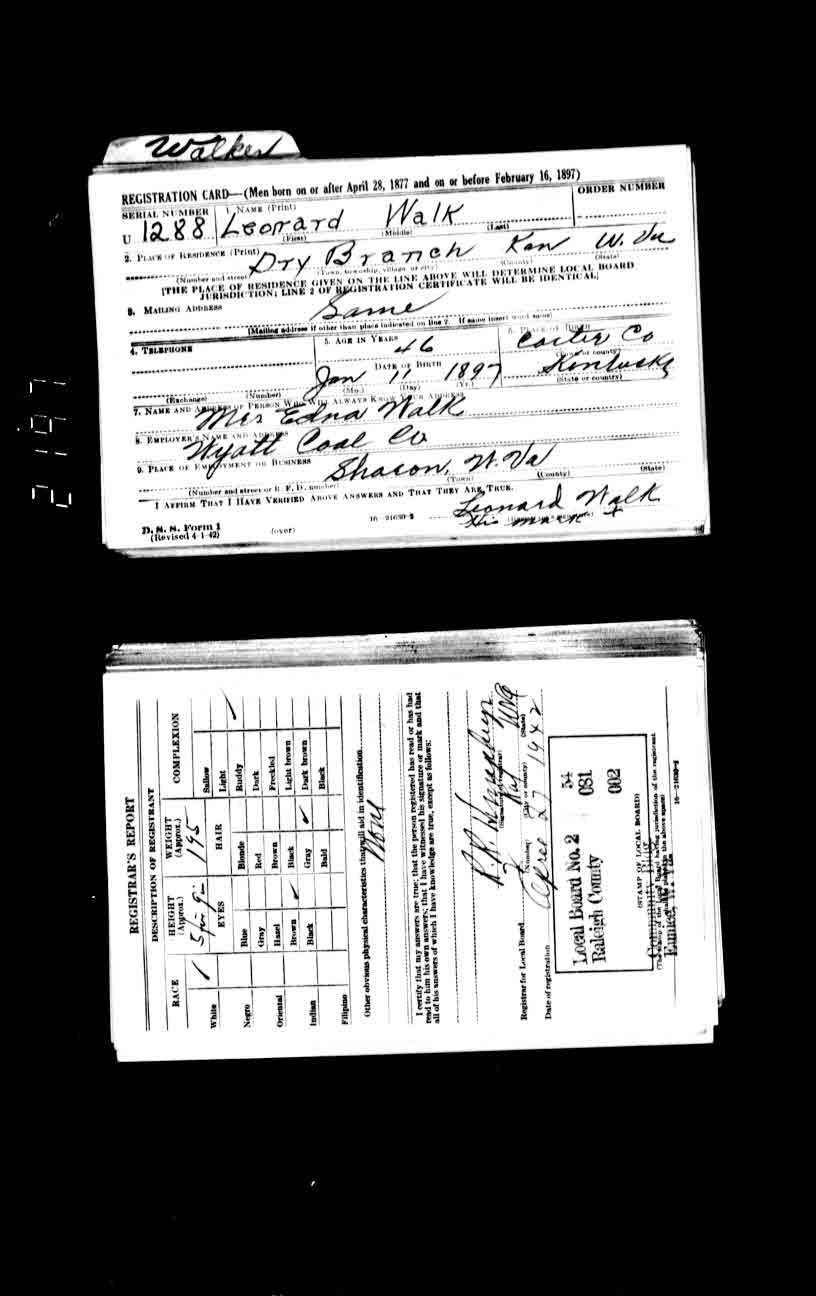 Walker
REGISTRATION CARD—(Men born on or after April 28, 1877 and on or before February 16, 1897)
SERIAL NUMBER 1. NAME (Print) ORDER NUMBER
U 1288 Leonard Walk
(First) (Middle) (Last)
2. PLACE OF RESIDENCE (Print)
Dry Branch Kan W. Va
(Number and street) (Town, township, village, or city) (County) (State)
[THE PLACE OF RESIDENCE GIVEN ON THE LINE ABOVE WILL DETERMINE LOCAL BOARD
JURISDICTION; LINE 2 OF REGISTRATION CERTIFICATE WILL BE IDENTICAL]
3. MAILING ADDRESS
Same
(Mailing address if other than place indicated on line 2. If same insert word same)
4. TELEPHONE 5. AGE IN YEARS 6. PLACE OF BIRTH
46 Carter Co
DATE OF BIRTH (Town or county)
Jan 11 1897 Kentucky
(Exchange) (Number) (Mo.) (Day) (Yr.) (State or country)
7. NAME AND ADDRESS OF PERSON WHO WILL ALWAYS KNOW YOUR ADDRESS
Mrs Edna Walk
8. EMPLOYER'S NAME AND ADDRESS
Wyatt Coal Co
9. PLACE OF EMPLOYMENT OR BUSINESS
Sharon, W. Va
(Number and street or R. F. D. number) (Town) (County) (State)
I AFFIRM THAT I HAVE VERIFIED ABOVE ANSWERS AND THAT THEY ARE TRUE.
Leonard Walk
D. S. S. Form 1 (over) 16—21630-2 His mark x
(Revised 4-1-42)
2197
REGISTRAR'S REPORT
DESCRIPTION OF REGISTRANT
RACE HEIGHT (Approx.) WEIGHT (Approx.) COMPLEXION
✓ 5 ft 9 in 195
White EYES HAIR Sallow
Light
Negro Blue Blonde Ruddy ✓
Gray Red Dark
Oriental Hazel Brown Freckled
Brown ✓ Black Light brown
Indian Black Gray ✓ Dark brown
Filipino Bald Black
Other obvious physical characteristics that will aid in identification
None
I certify that my answers are true; that the person registered has read or has had
read to him his own answers; that I have witnessed his signature or mark and that
all of his answers of which I have knowledge are true, except as follows:
(Signature of registrar)
Registrar for Local Board 2 Ral WVa
(Number) (City or county) (State)
Date of registration April 27 1942
Local Board No. 2 54
Raleigh County 081
002
(STAMP OF LOCAL BOARD)
(The stamp of the Local Board having jurisdiction of the registrant
shall be placed in the above space)
16—21630-2